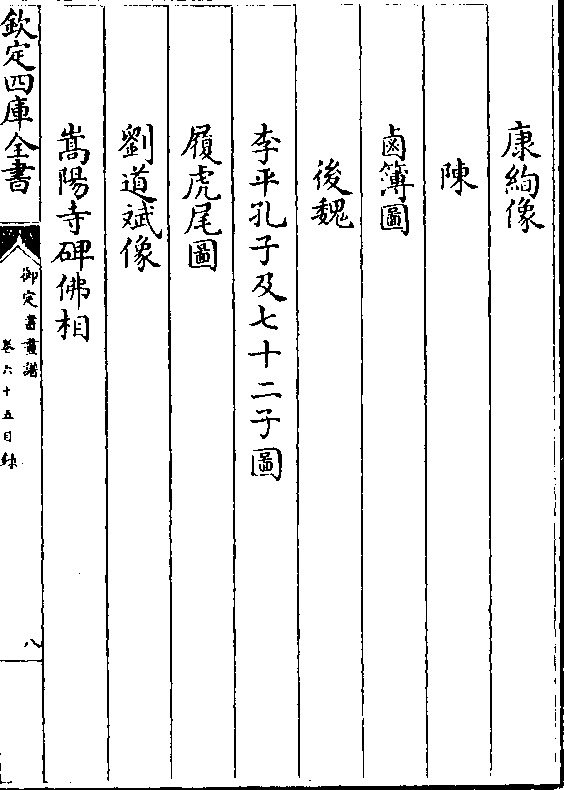 康絢像
陳
鹵簿圖
後魏
李平孔子及七十二子圖
履虎尾圖
劉道斌像
嵩陽寺碑佛相
欽定四庫全書
御定書畫譜
卷六十五目録
八